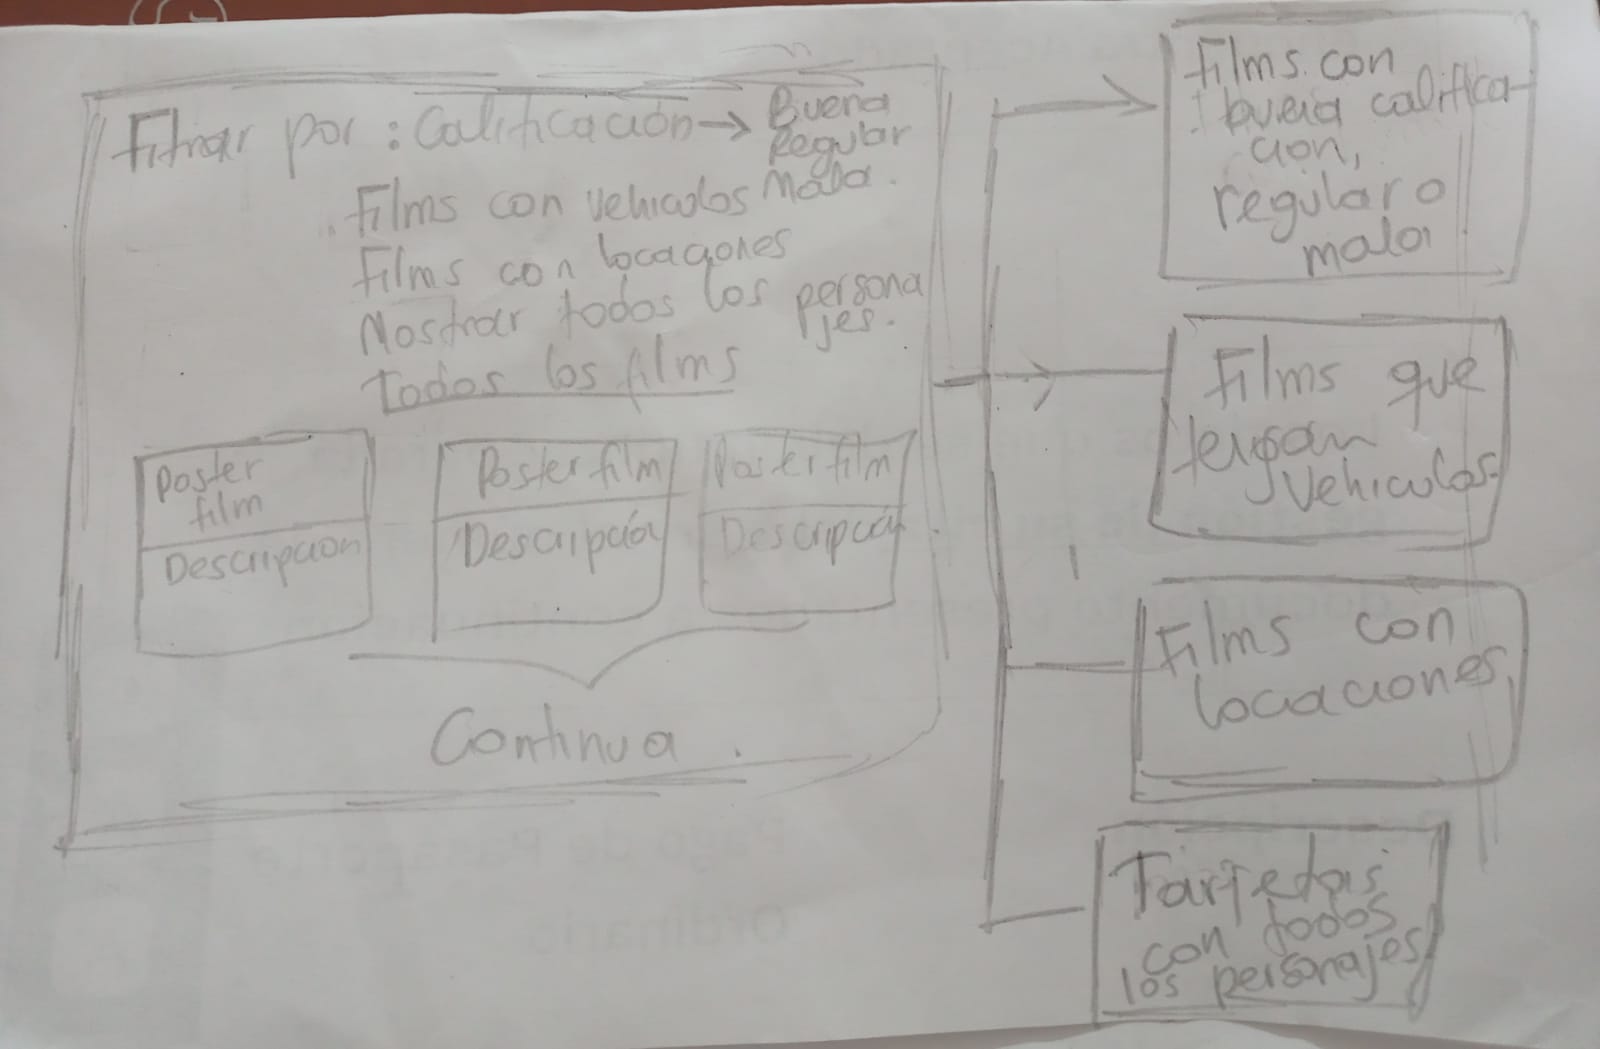 Filtrar por : Calificación → Buena
Regular
Mala.
Films con vehiculos
Films con locaciones
Mostrar todos los persona
jes.
todos los films
Poster
film
Descripcion
Poster film
Descripción
Poster film
Descripción
Continua
Films con
buena califica-
cion,
regular o
mala
Films que
tengan
vehiculos.
Films con
locaciones
Tarjetas
con todos
los personajes
Pago de
Ordinario